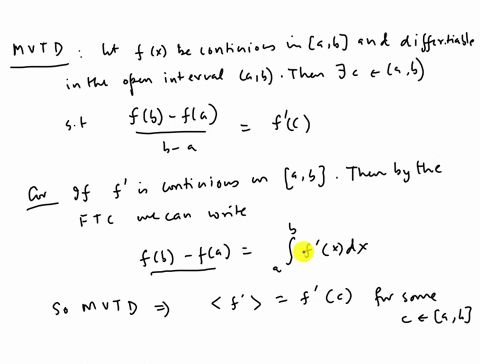 MVTD : let f(x) be continious in [a,b] and differtiable
in the open interval (a,b). Then ∃ c ∈ (a,b)
s.t (f(b) - f(a))/(b-a) = f'(c)
Cor If f' is continious on [a,b]. Then by the
FTC we can write
f(b) - f(a) = ∫_a^b f'(x) dx
So MVTD ⇒ <f'> = f'(c) for some
c ∈ [a,b]